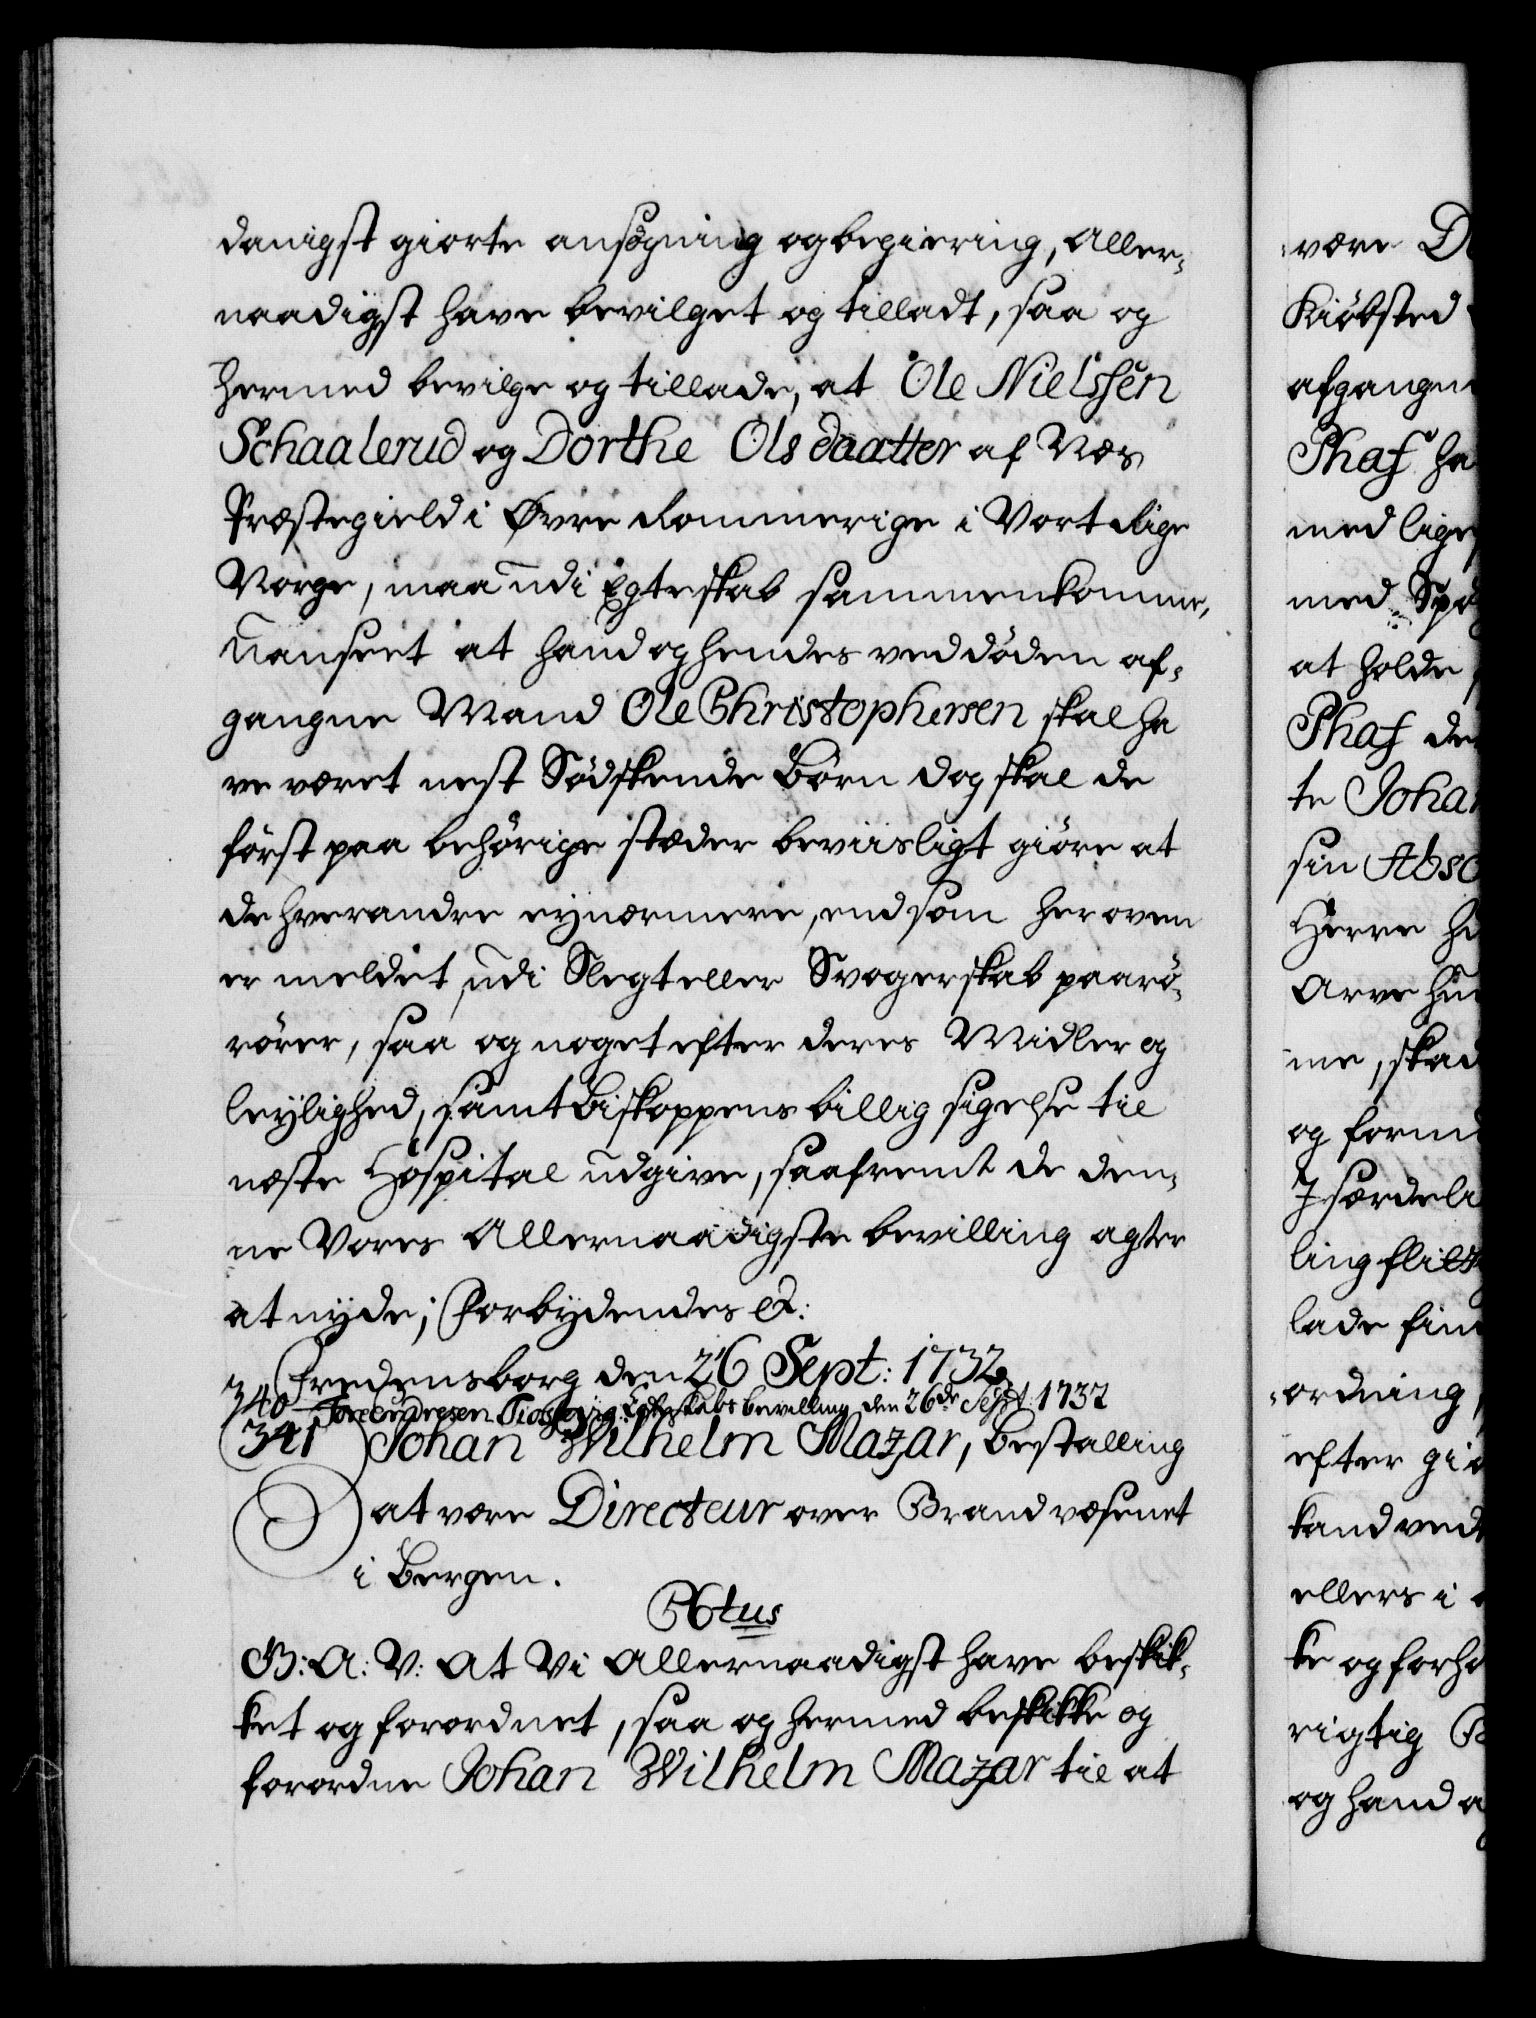 danigst giorte ansøgning og begiering, Aller-
naadigst have bevilget og tilladt, saa og
hermed bevilge og tillade, at Ole Nielssen
Schaalerud og Dorthe Olsdaatter af Næs
Præstegield i Øvre Rommerige i Vort Rige
Norge, maa udi Egteskab sammenkomme,
uanseet at hand og hendes ved døden af-
gangne Mand Ole Christophersen skal ha
ve været nest Södskende Börn dog skal de
först paa behörige stæder beviisligt giöre at
de hverandre ey nærmere, end som her oven
er meldet, udi Slegt eller Svogerskab paarö-
rörer, saa og noget efter deres Midler og
leylighed, samt Biskoppens billig sigelse til
næste Hospital udgive, saafremt de den-
ne Vores Allernaadigste bevilling agter
at nyde; Forbydendes &:
Fredensborg den 26 Sept: 1732
340 Tore Endresen Egteskabs bevilling den 26de Sept. 1732
341 Johan Wilhelm Mazar, Bestalling
at være Directeur over Brandvæsenet
i Bergen.
C 6tus
G: A: V: At Vi Allernaadigst have beskik-
ket og forordnet, saa og hermed beskikke og
forordne Johan Wilhelm Mazar til at
være
Kiöbsted
afgangne
Phaf ha
med lige
med
at holde
Phaf de
te Johan
sin Abso
Herre
Arve
me, skad
og
Jsærdeli
ling
lade
ordning
efter gi
kand ved
ellers i
ke og forh
rigtig
og hand a